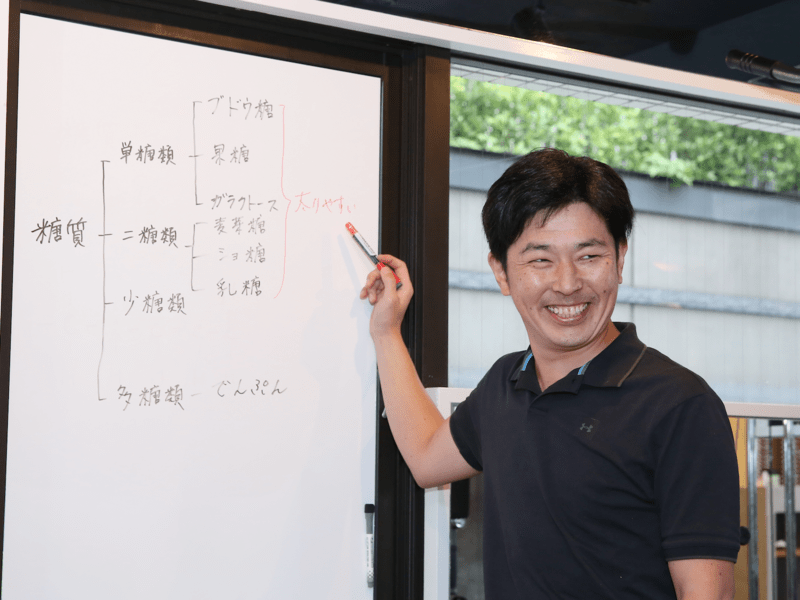 ブドウ糖
単糖類
果糖
ガラクトース
太りやすい
糖質
二糖類
麦芽糖
ショ糖
乳糖
少糖類
多糖類 - でんぷん